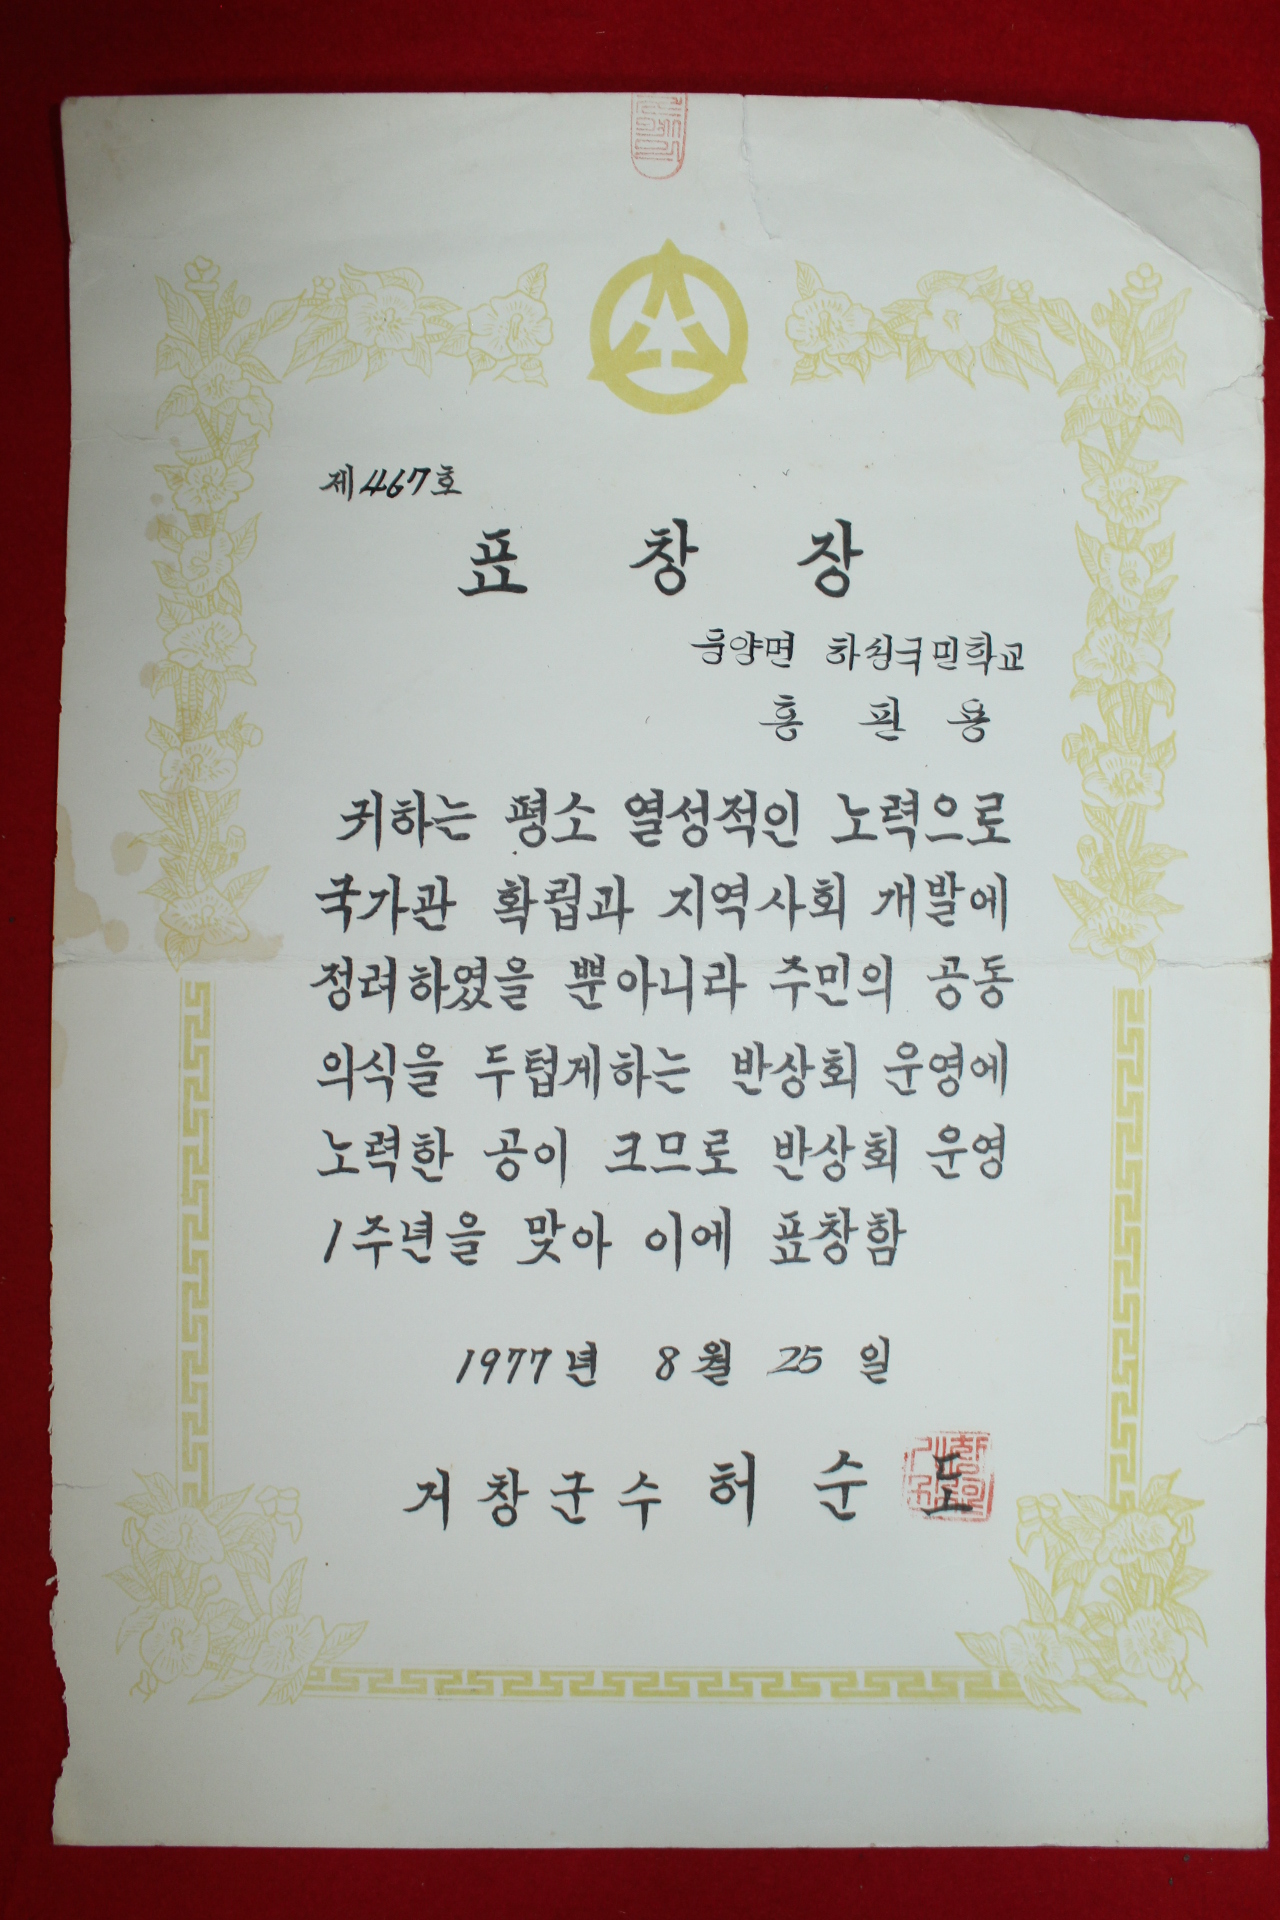 제467호
표창장
웅양면 하성국민학교
홍판용
귀하는 평소 열성적인 노력으로
국가관 확립과 지역사회 개발에
정려하였을 뿐아니라 주민의 공동
의식을 두텁게하는 반상회 운영에
노력한 공이 크므로 반상회 운영
1주년을 맞아 이에 표창함
1977년 8월 25일
거창군수 허순도